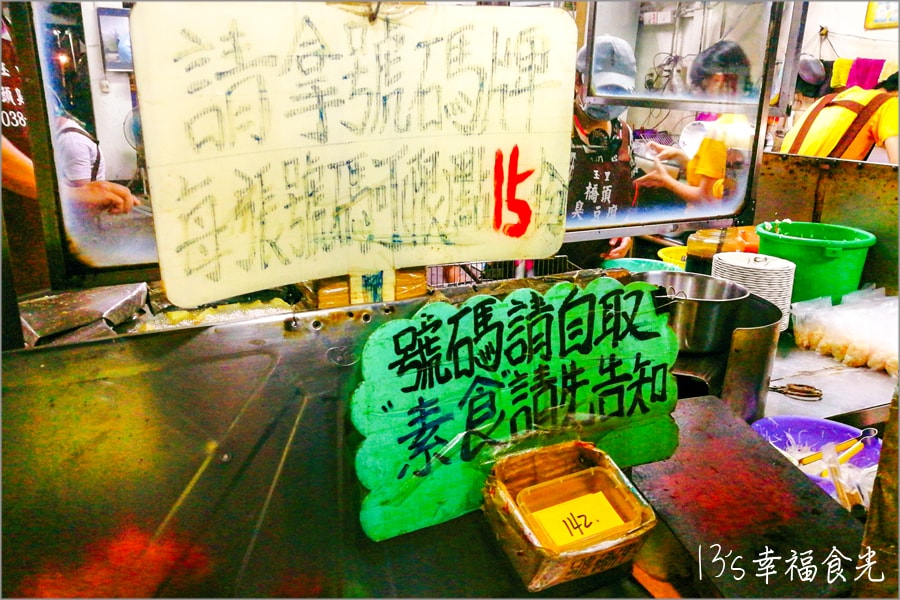 請拿號碼牌
每張號碼可限購15份
號碼請自取
"素食"請先告知
142
玉里
橋頭
臭豆腐
頭
038
13's幸福食光